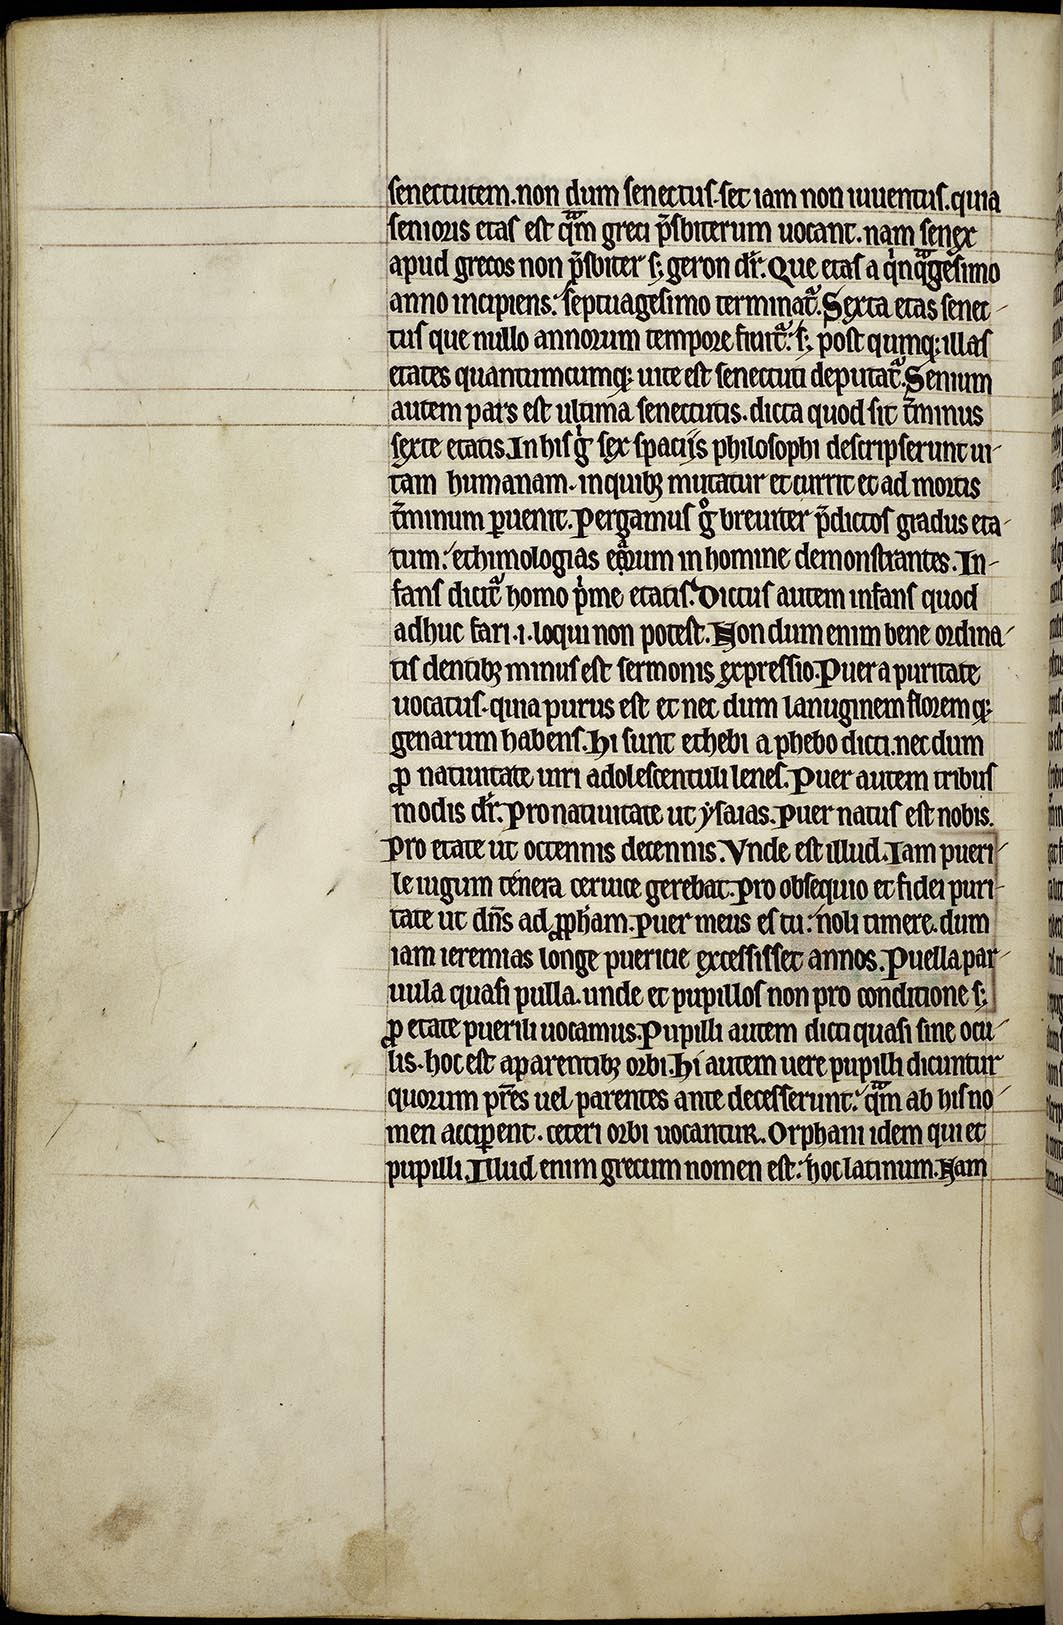 senectutem. non dum senectus. set iam non iuuentus. quia
senioris etas est qᷓm greci p̄sbiterum uocant. nam senex
apud grecos non p̄sbiter sꝫ geron dr̄. Que etas a qͥnqᷓgesimo
anno incipiens. septuagesimo terminatᷓ. Sexta etas senec-
tus que nullo annorum tempore finitᷓ. sꝫ post qumqꝫ illas
etates quantumcumqꝫ uite est senectuti deputatᷓ. Senium
autem pars est ultima senectutis. dicta quod sit t̄minus
sexte etatis. In his gͥ sex spatijs philosophi descripserunt ui-
tam humanam. in quibꝫ mutatur et currit et ad mortis
t̄minum ꝑuenit. Pergamus gͦ breuiter p̄dictos gradus eta-
tum. ethimologias eaᷓrum in homine demonstrantes. In-
fans dicitᷓ homo pͥme etatis. Dictus autem infans quod
adhuc fari .i. loqui non potest. Non dum enim bene ordina-
tis dentibꝫ minus est sermonis expressio. Puer a puritate
uocatus. quia purus est et nec dum lanuginem florem qꝫ
genarum habens. Hi sunt ethebi a phebo dicti. nec dum
ꝓ natiuitate uiri adolescentuli lenes. Puer autem tribus
modis dr̄. Pro natiuitate ut ẏsaias. Puer natus est nobis.
Pro etate ut octennis decennis. Vnde est illud. Iam pueri-
le iugum tenera ceruice gerebat. Pro obsequio et fidei puri-
tate ut dn̄s ad ꝓpħam. Puer meus es tu. noli timere. dum
iam ieremias longe puericie excessisset annos. Puella par-
uula quasi pulla. unde et pupillos non pro conditione sꝫ
ꝓ etate puerili uocamus. Pupilli autem dicti quasi sine ocu-
lis. hoc est a parentibꝫ orbi. Hi autem uere pupilli dicuntur
quorum pr̄es uel parentes ante decesserunt. qᷓm ab his no-
men acciꝑent. ceteri orbi uocantur. Orphani idem qui et
pupilli. Illud enim grecum nomen est. hoc latinum. Nam